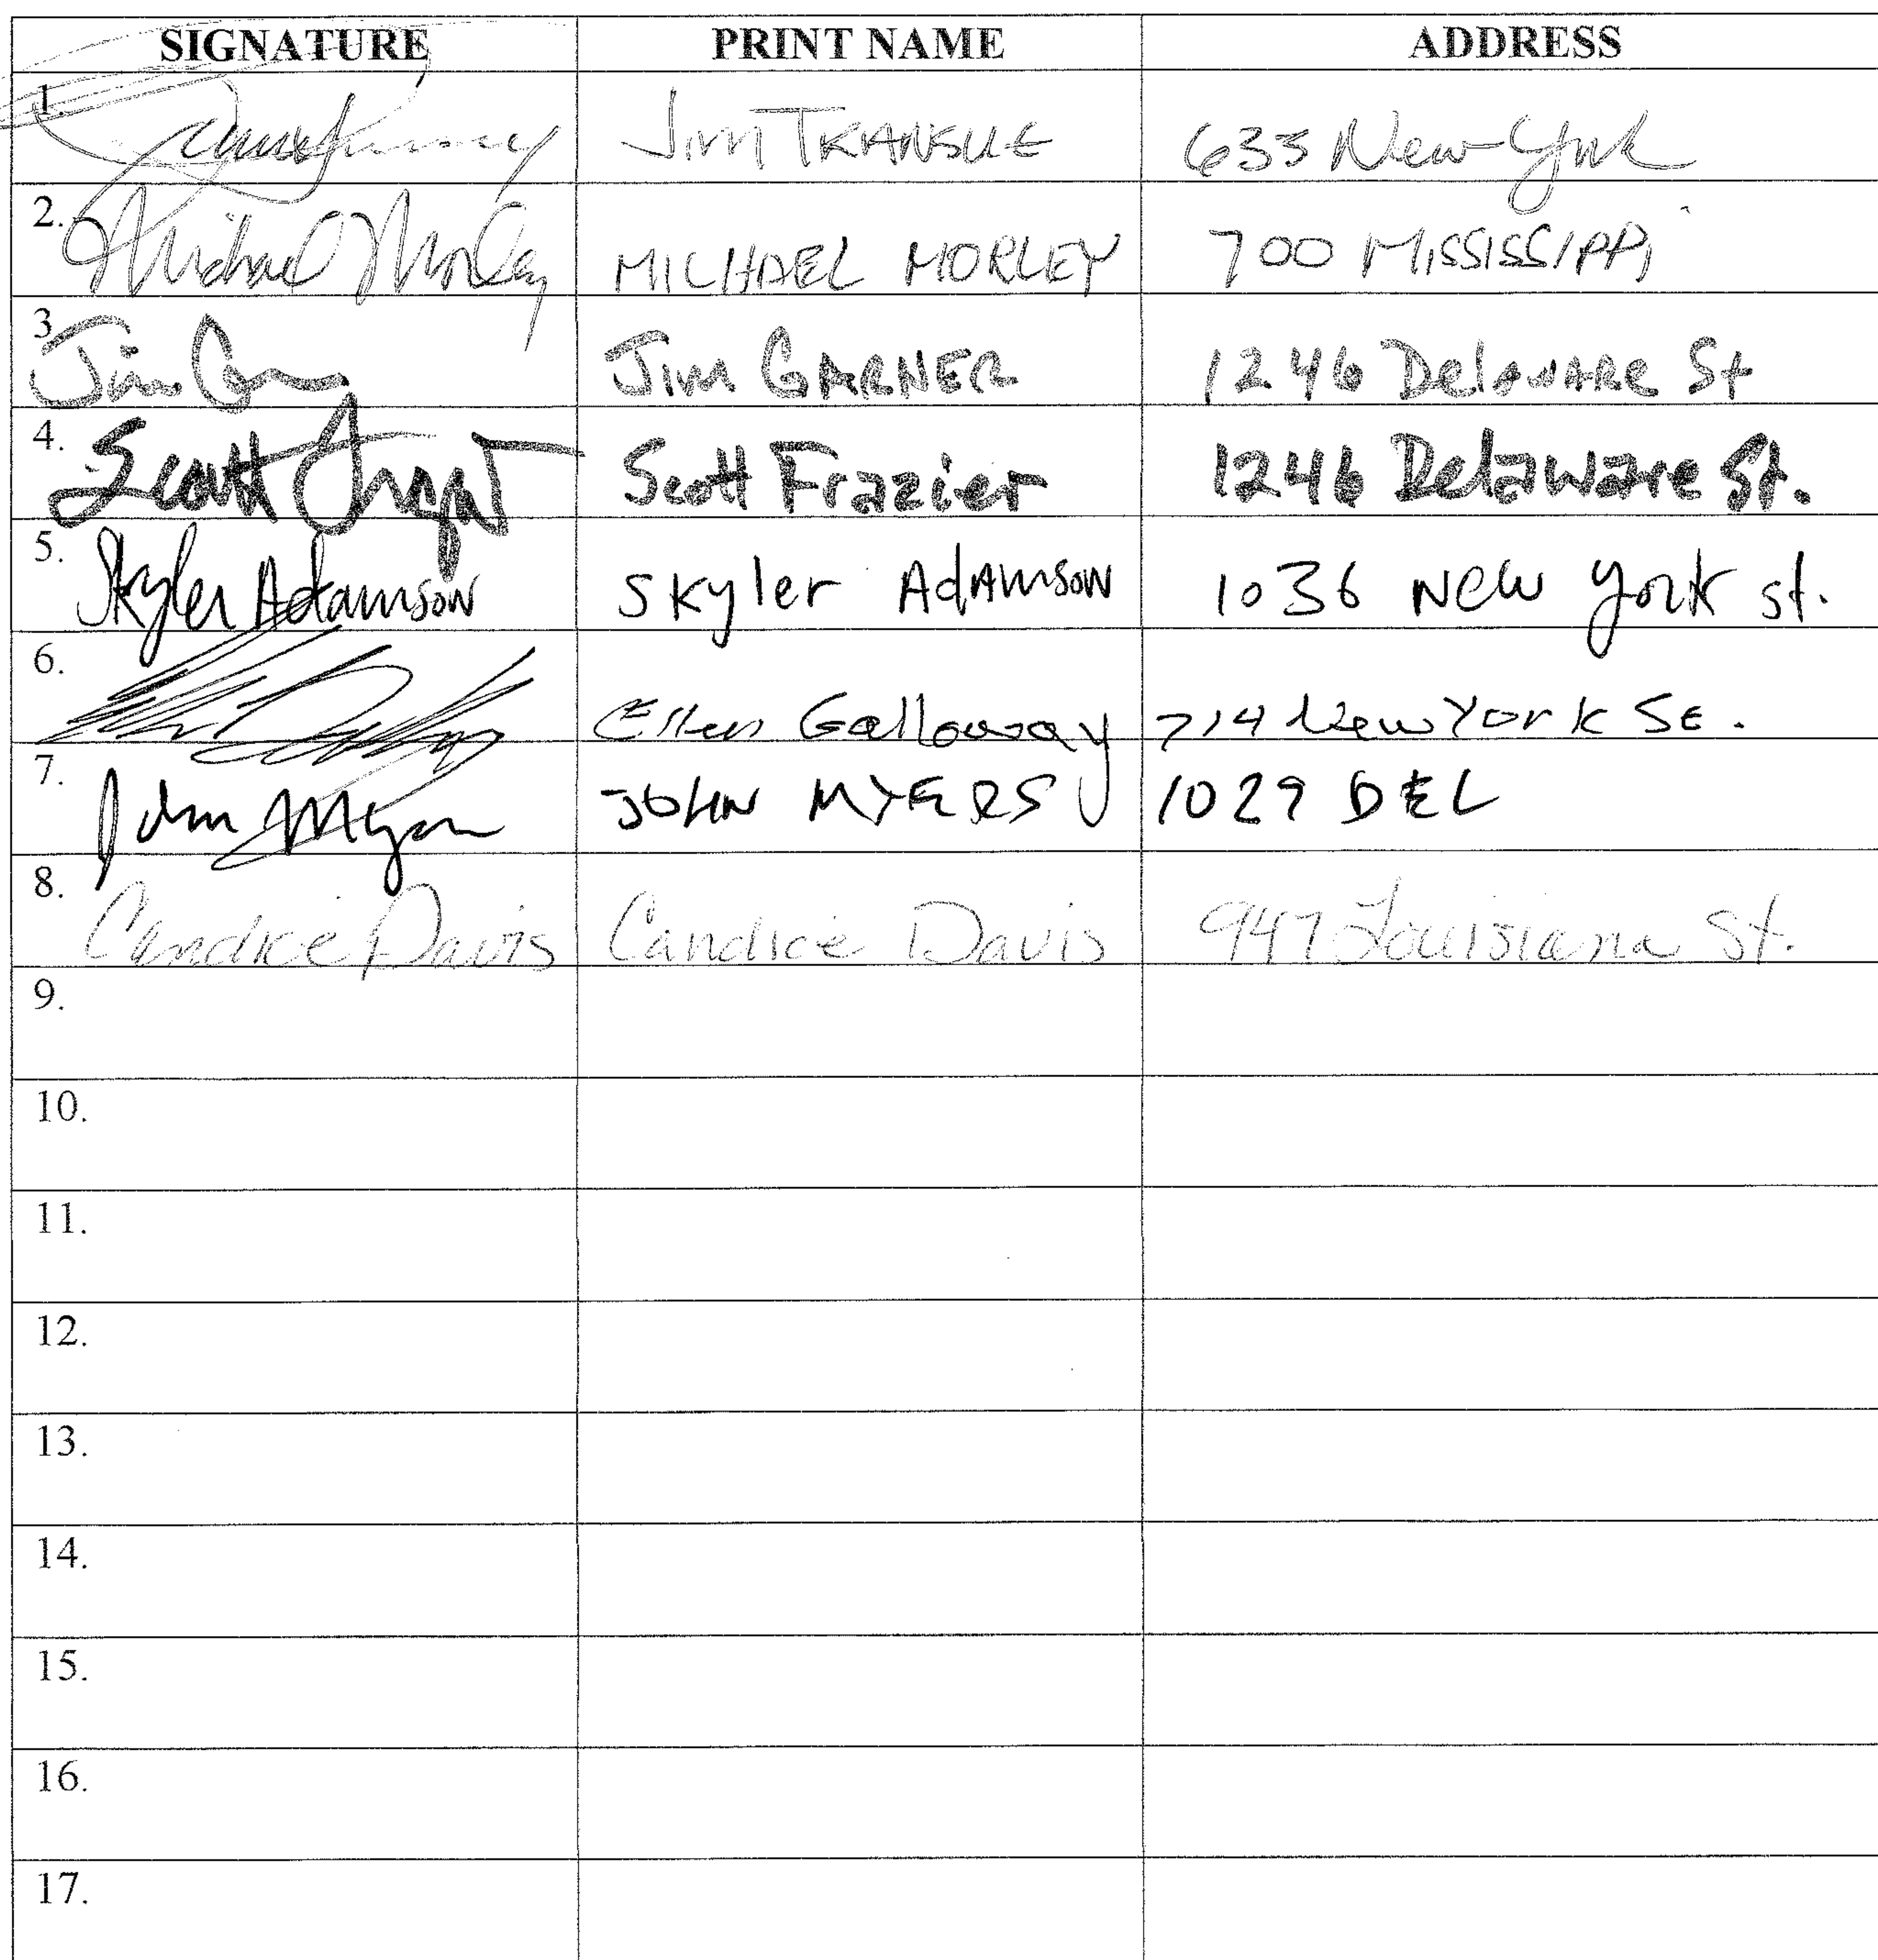 SIGNATURE PRINT NAME ADDRESS
1. JIM TRANSUE 633 New York
2. Michael Morley MICHAEL MORLEY 700 MISSISSIPPI
3. Jim JIM GARNER 1246 Delaware St
4. Scott Scott Frazier 1246 Delaware St.
5. Skyler Adamson Skyler Adamson 1036 New York st.
6. Galloway 714 New York St.
7. John Myers JOHN MYERS 1029 DEL
8. Candice Davis Candice Davis 947 Louisiana St.
9.
10.
11.
12.
13.
14.
15.
16.
17.